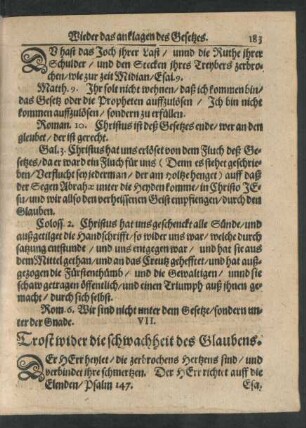 Wieder das anklagen des Gesetzes. 183
DV hast das Joch jhrer Last / vnnd die Ruthe jhrer
Schulder / vnd den Stecken jhres Treybers zerbro-
chen / wie zur zeit Midian / Esal. 9.
Matth. 9. Jhr solt nicht wehnen / daß ich kommen bin /
das Gesetz oder die Propheten auffzulösen / Jch bin nicht
kommen auffzulösen / sondern zu erfüllen.
Roman. 10. Christus ist deß Gesetzes ende / wer an den
glenbet / der ist gerecht.
Gal. 3. Christus hat vns erlöset von dem Fluch deß Ge-
setzes / da er ward ein Fluch für vns ( Denn es stehet geschrie-
ben / Verflucht sey jederman / der am holtz henget ) auff daß
der Segen Abrahæ vnter die Heyden komme / in Christo JE-
su / vnd wir also den verheissenen Geist empfiengen / durch den
Glauben.
Coloss. 2. Christus hat vns geschenckt alle Sünde / vnd
außgetilget die Handschrifft / so wider vns war / welche durch
satzung entstunde / vnd vns entgegen war / vnd hat sie aus
dem Mittel gethan / vnd an das Creutz gehefftet / vnd hat auß-
gezogen die Fürstenthümb / vnd die Gewaltigen / vnnd sie
schaw getragen öffentlich / vnd einen Triumph auß jhnen ge-
macht / durch sich selbst.
Rom. 6. Wir sind nicht vnter dem Gesetze / sondern vn-
ter der Gnade.
VII.
Trost wider die schwachheit des Glaubens.
DEr HErr heylet / die zerbrochens Hertzens sind / vnd
verbindet jhre schmertzen. Der HErr richtet auff die
Elenden / Psalm 147.
Esa.